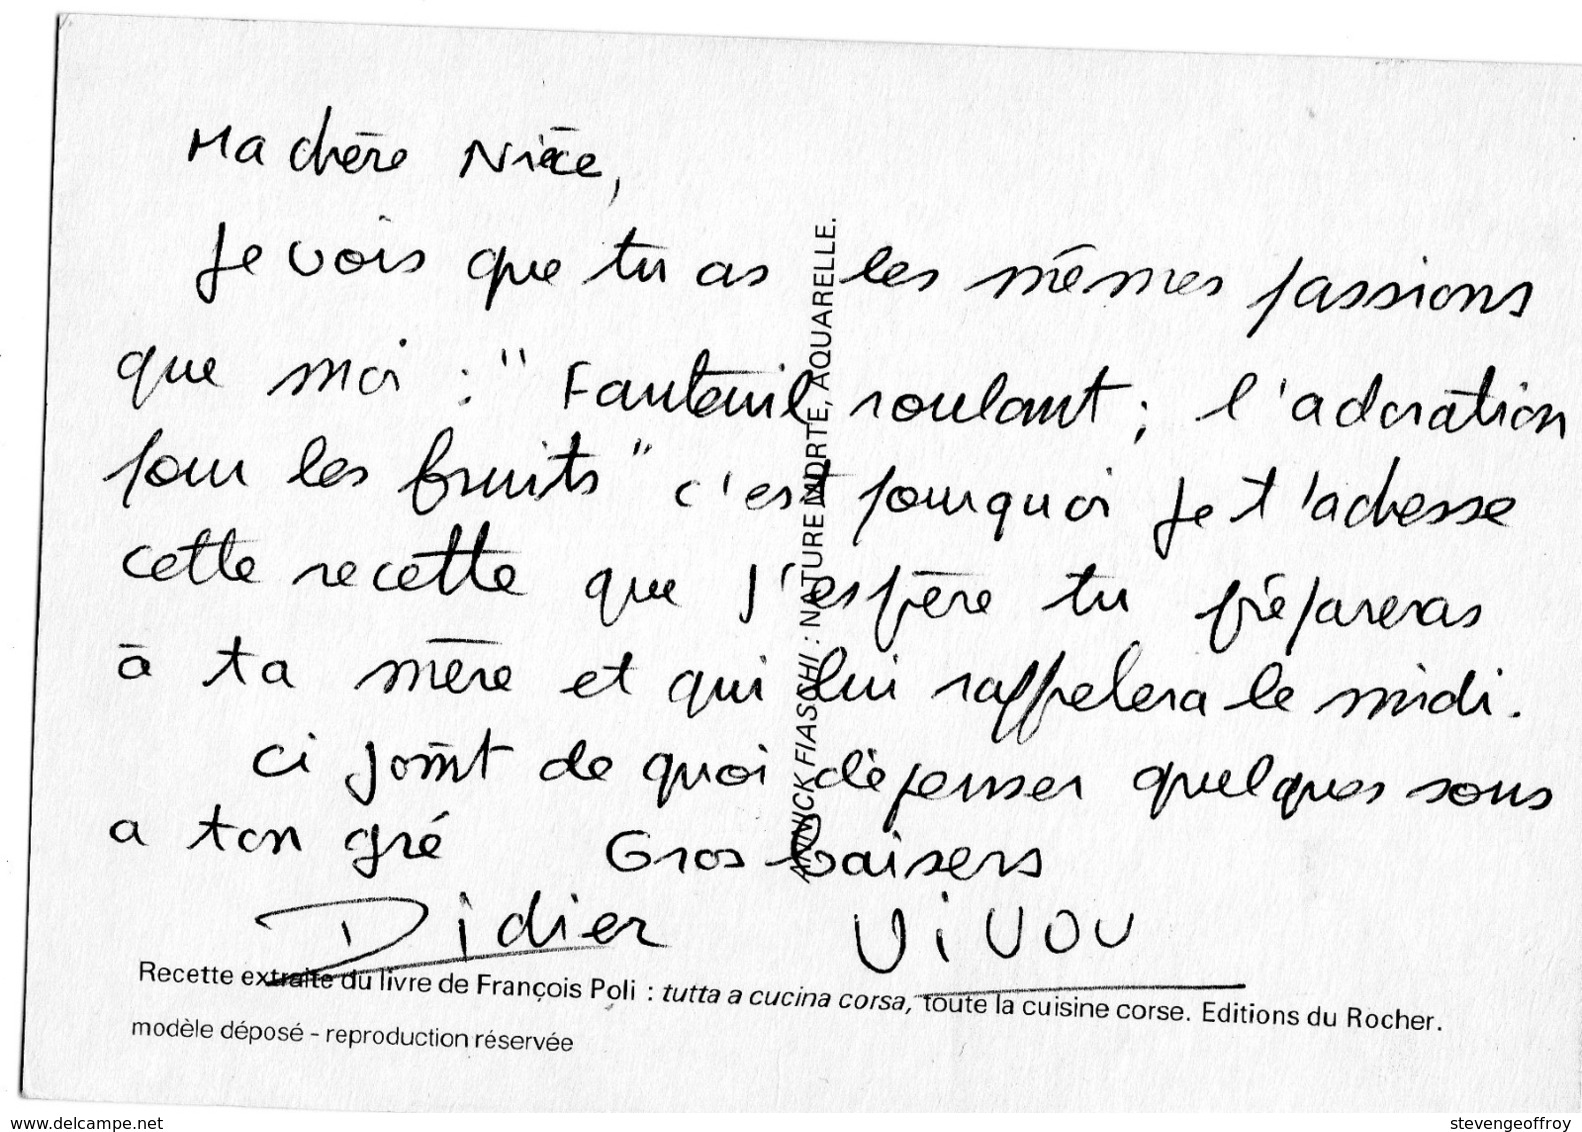 Ma chère Nièce,
Je vois que tu as les mêmes passions
que moi : "Fauteuil roulant ; l'adoration
pour les fruits" c'est pourquoi je t'adresse
cette recette que j'espère tu prépareras
à ta mère et qui lui rappelera le midi.
Ci joint de quoi dépenser quelques sous
a ton gré Gros baisers
Didier VIVOU
ANNICK FIASCHI : NATURE MORTE, AQUARELLE.
Recette extraite du livre de François Poli : tutta a cucina corsa, toute la cuisine corse. Editions du Rocher.
modèle déposé - reproduction réservée
www.delcampe.net
stevengeoffroy